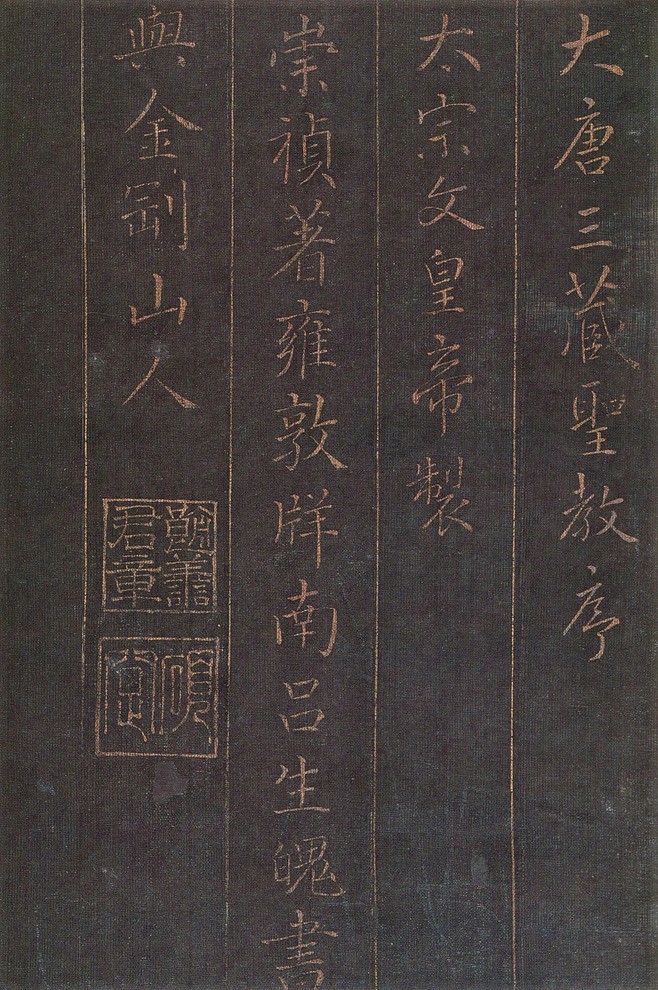 大唐三藏聖教序
太宗文皇帝製
崇禎著雍敦牂南呂生魄書
與金剛山人